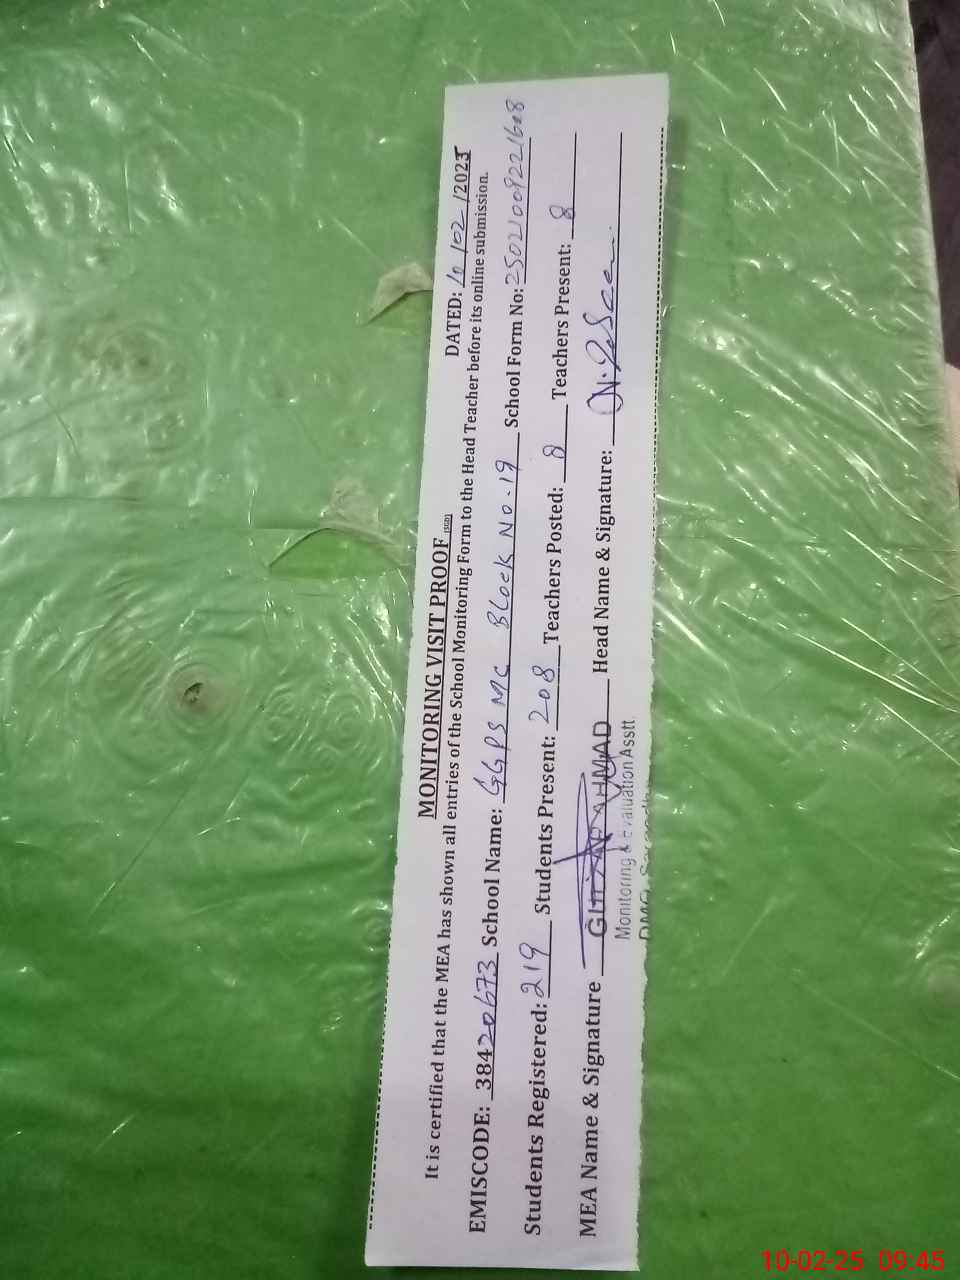 MONITORING VISIT PROOF (SGD)
DATED: 10/02/2025
It is certified that the MEA has shown all entries of the School Monitoring Form to the Head Teacher before its online submission.
EMISCODE: 38420673 School Name: GGPS MC Block No-19 School Form No:
Students Registered: 219 Students Present: 208 Teachers Posted: 8 Teachers Present: 8
MEA Name & Signature AHMAD Head Name & Signature:
Monitoring & Evaluation Asstt.
10-02-25 09:45